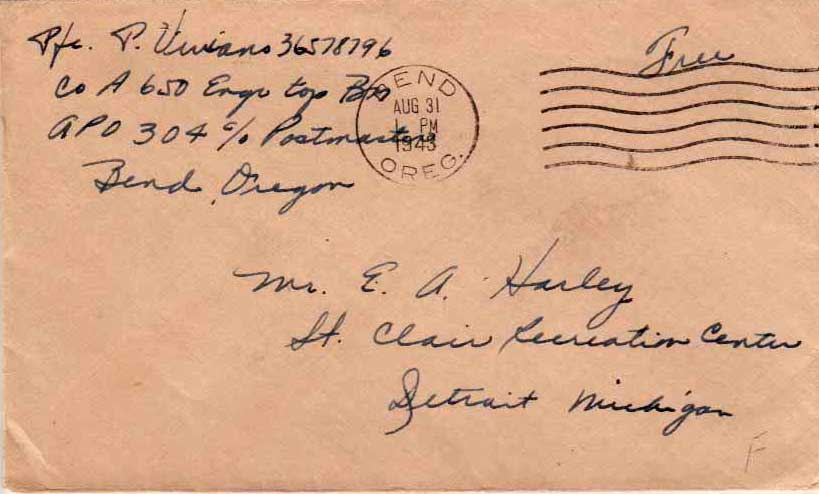 Pfc. P. Viviano 36578796
Co A 650 Engr top Bn
APO 304 c/o Postmaster
Bend, Oregon
BEND
AUG 31
1 PM
1943
OREG.
Free
Mr. E. A. Harley
St. Clair Recreation Center
Detroit Michigan
F